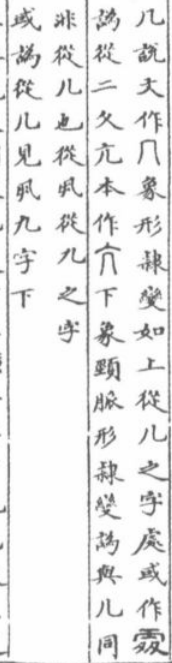 几說文作几象形隸變如上從几之字處或作
譌從二夂亢本作下象頸脈形隸變譌與几同
非從几也從丮從九之字
或譌從几見丮九字下